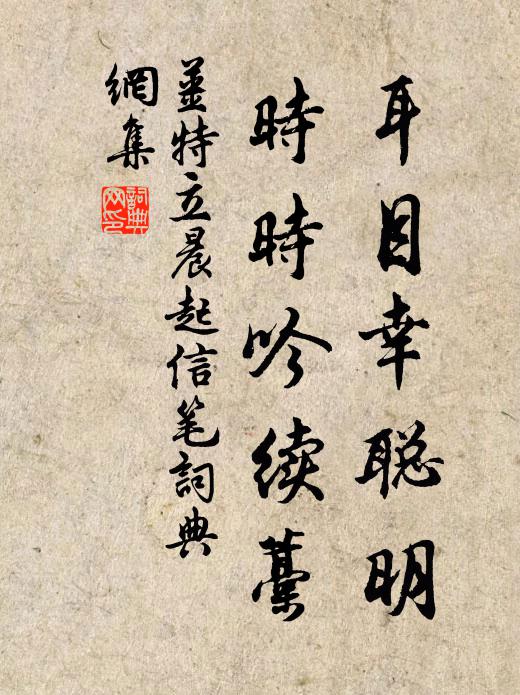 耳目幸聪明
時時吟续藁
姜特立晨起信笔詞典
網集
詞典
网印